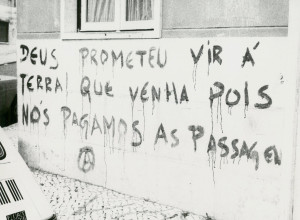 DEUS PROMETEU VIR Á
TERRA! QUE VENHA POIS
NÓS PAGAMOS AS PASSAGEN